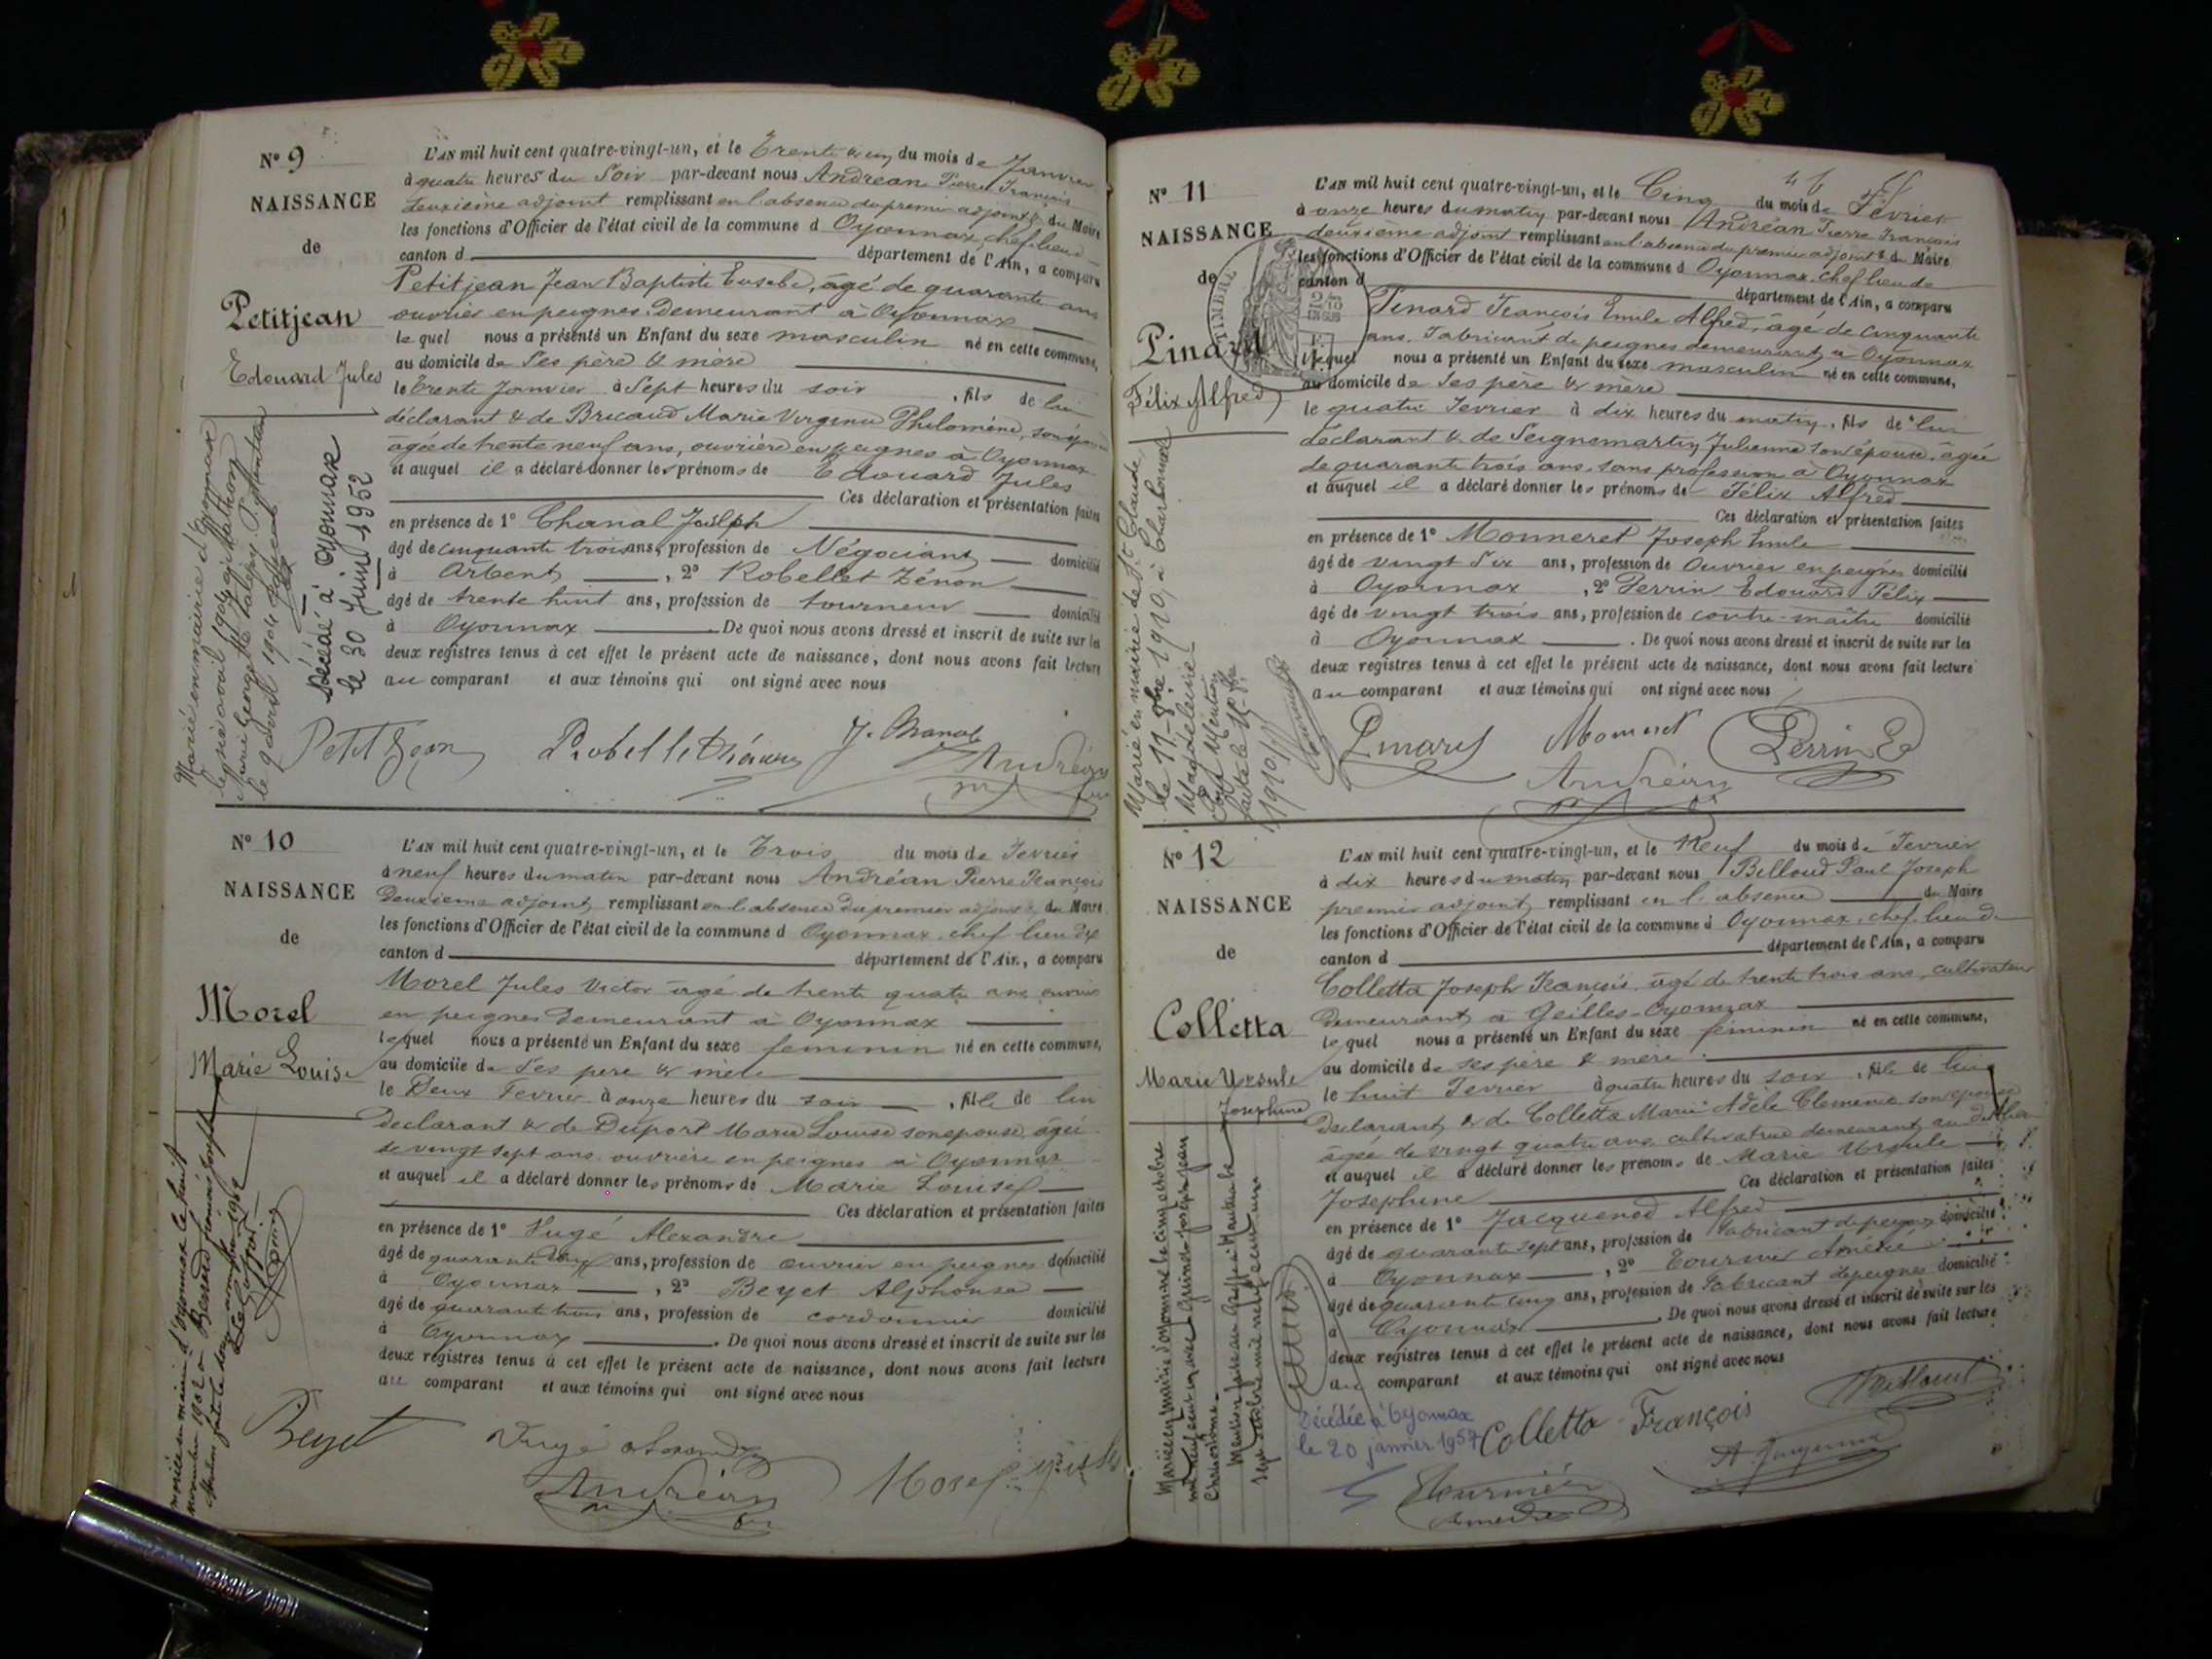 N° 9
NAISSANCE
de
Petitjean
Edouard Jules
Marié en mairie d'Oyonnax
Décédé à Oyonnax
le 30 Juin 1952
L'AN mil huit cent quatre-vingt-un, et le Trente & un du mois de Janvier
à quatre heures du Soir par-devant nous Andréan Pierre François
deuxième adjoint remplissant en l'absence du premier adjoint & du Maire
les fonctions d'Officier de l'état civil de la commune d Oyonnax, chef-lieu de
canton d département de l'Ain, a comparu
Petitjean Jean Baptiste Eusebe, âgé de quarante ans
ouvrier en peignes, Demeurant à Oyonnax
lequel nous a présenté un Enfant du sexe masculin né en cette commune,
au domicile de Ses père & mère
le trente Janvier à Sept heures du soir, fils de lui
déclarant & de Bricaud Marie Virginie Philomène, son épouse
agée de trente neuf ans, ouvrière en peignes à Oyonnax
et auquel il a déclaré donner les prénoms de Edouard Jules
Ces déclaration et présentation faites
en présence de 1° Chanal Joseph
âgé de cinquante trois ans, profession de Négociant domicilié
à Arbent, 2° Robellet Zénon
âgé de trente huit ans, profession de tourneur domicilié
à Oyonnax. De quoi nous avons dressé et inscrit de suite sur les
deux registres tenus à cet effet le présent acte de naissance, dont nous avons fait lecture
au comparant et aux témoins qui ont signé avec nous
Petit Jean J. Chanal
Andréan
N° 10
NAISSANCE
de
Morel
Marie Louise
L'AN mil huit cent quatre-vingt-un, et le Trois du mois de Fevrier
à neuf heures du matin par-devant nous Andréan Pierre François
Deuxieme adjoint remplissant en l'absence du premier adjoint & du Maire
les fonctions d'Officier de l'état civil de la commune d Oyonnax, chef lieu de
canton d département de l'Ain, a comparu
Morel Jules Victor âgé de trente quatre ans ouvrier
en peignes Demeurant à Oyonnax
lequel nous a présenté un Enfant du sexe feminin né en cette commune,
au domicile de Ses pere & mere
le Deux Fevrier à onze heures du soir, fille de lui
Declarant & de Duport Marie Louise son epouse, agée
de vingt sept ans ouvrière en peignes à Oyonnax
et auquel il a déclaré donner les prénoms de Marie Louise
Ces déclaration et présentation faites
en présence de 1° Hugé Alexandre
âgé de quarante ans, profession de ouvrier en peignes domicilié
à Oyonnax, 2° Beyet Alphonse
âgé de quarante trois ans, profession de cordonnier domicilié
à Oyonnax. De quoi nous avons dressé et inscrit de suite sur les
deux registres tenus à cet effet le présent acte de naissance, dont nous avons fait lecture
au comparant et aux témoins qui ont signé avec nous
Beyet
Andréan Morel
N° 11
NAISSANCE
de
Pinard
Félix Alfred
TIMBRE
Marié en mairie de St Claude
le 11 8bre 1910, à Charbonnel
Magdeleine
L'AN mil huit cent quatre-vingt-un, et le Cinq du mois de Février
à onze heures du matin par-devant nous Andréan Pierre François
deuxieme adjoint remplissant en l'absence du premier adjoint & du Maire
les fonctions d'Officier de l'état civil de la commune d Oyonnax, chef lieu de
canton d département de l'Ain, a comparu
Pinard François Emile Alfred, âgé de cinquante
ans, Fabricant de peignes demeurant à Oyonnax
lequel nous a présenté un Enfant du sexe masculin né en cette commune,
au domicile de Ses père & mère
le quatre Fevrier à dix heures du matin, fils de lui
déclarant & de Seignemartin Julienne son épouse, âgée
de quarante trois ans, sans profession à Oyonnax
et auquel il a déclaré donner les prénoms de Félix Alfred
Ces déclaration et présentation faites
en présence de 1° Monneret Joseph Emile
âgé de vingt Six ans, profession de Ouvrier en peignes domicilié
à Oyonnax, 2° Perrin Edouard Félix
âgé de vingt trois ans, profession de contre-maître domicilié
à Oyonnax. De quoi nous avons dressé et inscrit de suite sur les
deux registres tenus à cet effet le présent acte de naissance, dont nous avons fait lecture
au comparant et aux témoins qui ont signé avec nous
Pinard Monneret Perrin E
Andréan
N° 12
NAISSANCE
de
Colletta
Marie Ursule
Josephine
L'AN mil huit cent quatre-vingt-un, et le Neuf du mois de Fevrier
à dix heures du matin par-devant nous Billoud Paul Joseph
premier adjoint remplissant en l'absence du Maire
les fonctions d'Officier de l'état civil de la commune d Oyonnax, chef lieu de
canton d département de l'Ain, a comparu
Colletta Joseph François, âgé de trente trois ans, cultivateur
Demeurant à Geilles-Oyonnax
lequel nous a présenté un Enfant du sexe feminin né en cette commune,
au domicile de ses père & mere
le huit Fevrier à quatre heures du soir, fille de lui
Declarant & de Colletta Marie Adèle Clemence son epouse
âgée de vingt quatre ans, cultivatrice demeurant au dit lieu
et auquel il a déclaré donner les prénoms de Marie Ursule
Josephine Ces déclaration et présentation faites
en présence de 1° Jacquenod Alfred
âgé de quarante sept ans, profession de Fabricant de peignes domicilié
à Oyonnax, 2°
âgé de quarante cinq ans, profession de Fabricant de peignes domicilié
à Oyonnax. De quoi nous avons dressé et inscrit de suite sur les
deux registres tenus à cet effet le présent acte de naissance, dont nous avons fait lecture
au comparant et aux témoins qui ont signé avec nous
Décédée à Oyonnax
le 20 janvier 1957
Colletta François